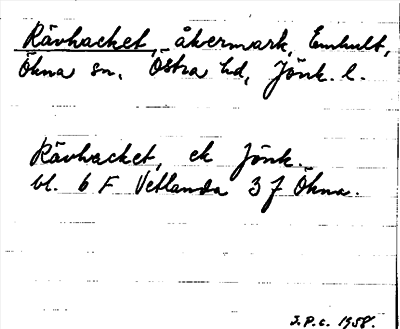 Rävhacket, åkermark, Emhult,
Ökna sn, Östra hd, Jönk. l.
Rävhacket, ek Jönk.
bl. 6 F Vetlanda 3 f Ökna.
J.P.c. 1958.